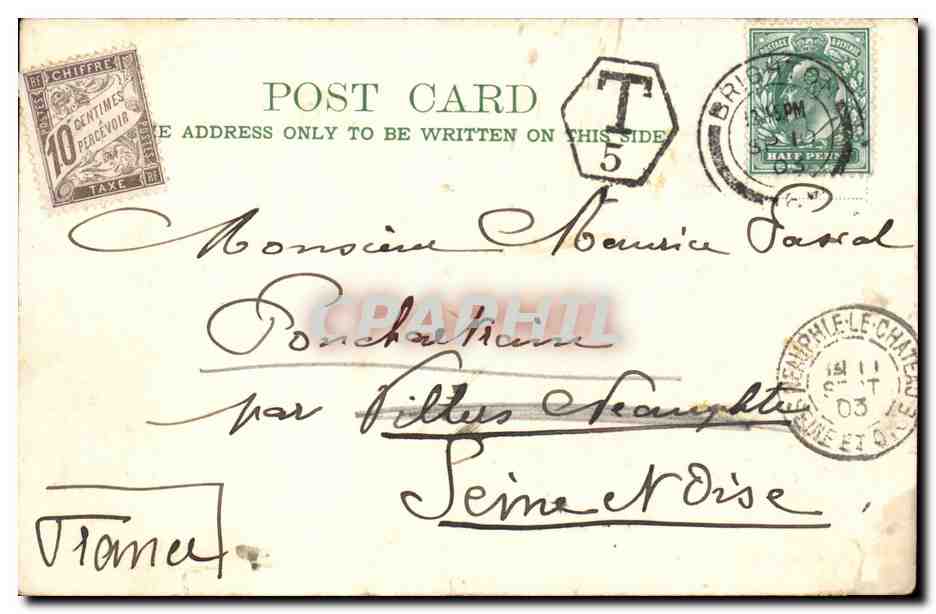 RF CHIFFRE
POSTES
10 CENTIMES
PERCEVOIR
TAXE RF
POST CARD
E ADDRESS ONLY TO BE WRITTEN ON THIS SIDE
T
5
POSTAGE & REVENUE
HALF PENNY
BRIGHTON
PM
SP 10
03
Monsieur Maurice Pascal
Ponchartrain
par Villers Neauphle
Seine N Oise
France
CPAPHIL
NEAUPHLE-LE-CHATEAU
11
SEPT
03
SEINE ET OISE